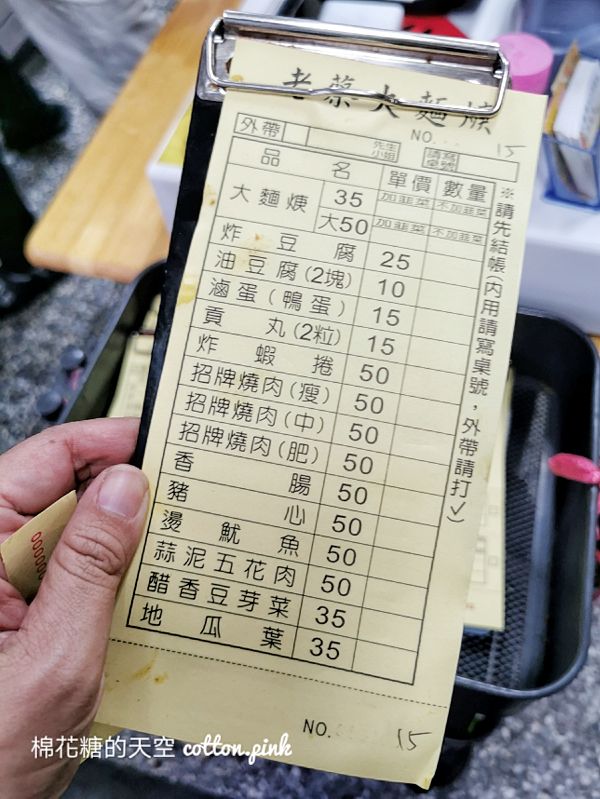 老蔡大麵焿
NO. 15
外帶 先生 小姐 請寫桌號
品名 單價 數量
大麵焿 35 加韭菜 不加韭菜
大50 加韭菜 不加韭菜
炸豆腐 25
油豆腐(2塊) 10
滷蛋(鴨蛋) 15
貢丸(2粒) 15
炸蝦捲 50
招牌燒肉(瘦) 50
招牌燒肉(中) 50
招牌燒肉(肥) 50
香腸 50
豬心 50
燙魷魚 50
蒜泥五花肉 50
醋香豆芽菜 35
地瓜葉 35
※請先結帳(內用請寫桌號,外帶請打✓)
NO. 15
棉花糖的天空 cotton.pink